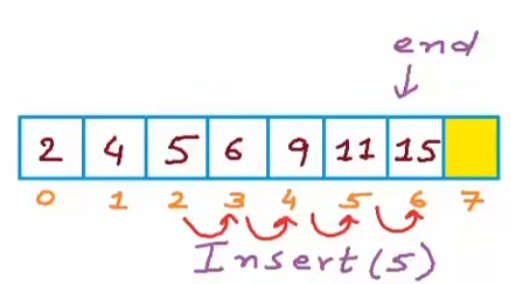 end
2 4 5 6 9 11 15
0 1 2 3 4 5 6 7
Insert(5)